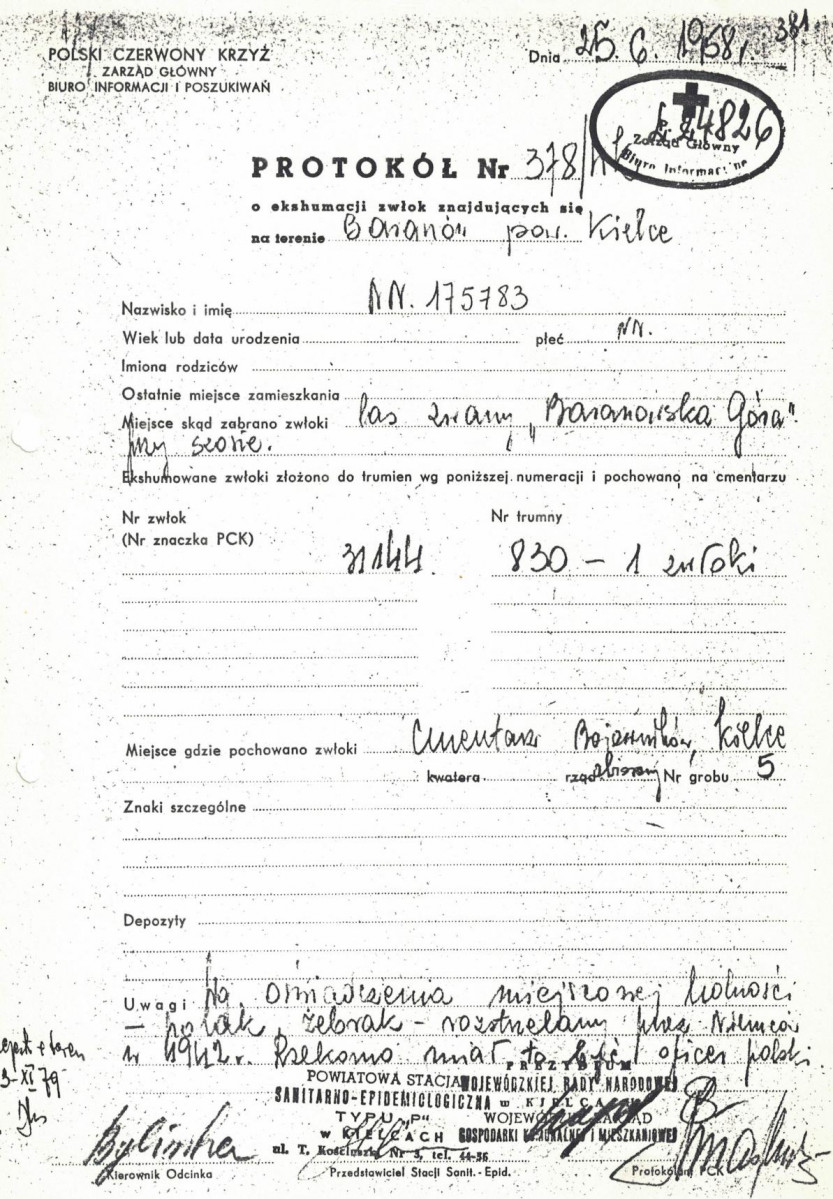 381
POLSKI CZERWONY KRZYŻ
ZARZĄD GŁÓWNY
BIURO INFORMACJI I POSZUKIWAŃ
Dnia 25. 6. 1968 r.
24826
Zarząd Główny
Biuro Informacyjne
PROTOKÓŁ Nr 378/
o ekshumacji zwłok znajdujących się
na terenie Baranów pow. Kielce
Nazwisko i imię NN. 175783
Wiek lub data urodzenia płeć NN.
Imiona rodziców
Ostatnie miejsce zamieszkania
Miejsce skąd zabrano zwłoki las zwany „Baranowska Góra"
przy szosie.
Ekshumowane zwłoki złożono do trumien wg poniższej numeracji i pochowano na cmentarzu
Nr zwłok
(Nr znaczka PCK)
Nr trumny
31144. 830 – 1 zwłoki
Miejsce gdzie pochowano zwłoki Cmentarz Bojowników, Kielce
kwatera rząd zbiorowy Nr grobu 5
Znaki szczególne
Depozyty
Uwagi Wg. oświadczenia miejscowej ludności
– polak, żebrak – rozstrzelany przez Niemców
w 1942 r. Rzekomo miał to być oficer polski
3-XI-79
POWIATOWA STACJA
SANITARNO-EPIDEMIOLOGICZNA
TYPU „P"
w KIELCACH
ul. T. Kościuszki Nr 3, tel. 44-56
PREZYDIUM
WOJEWÓDZKIEJ RADY NARODOWEJ
w KIELCACH
WOJEWÓDZKI ZARZĄD
GOSPODARKI KOMUNALNEJ I MIESZKANIOWEJ
Kierownik Odcinka
Przedstawiciel Stacji Sanit. - Epid.
Protokólant PCK